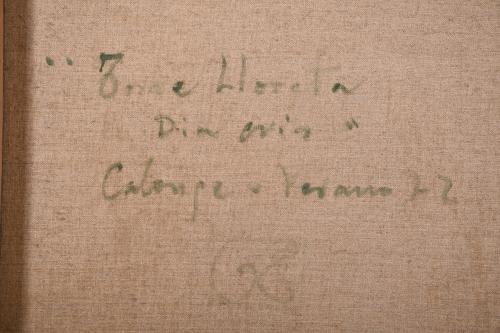 "Torre Lloreta
Dia gris"
Calonge - Verano 72